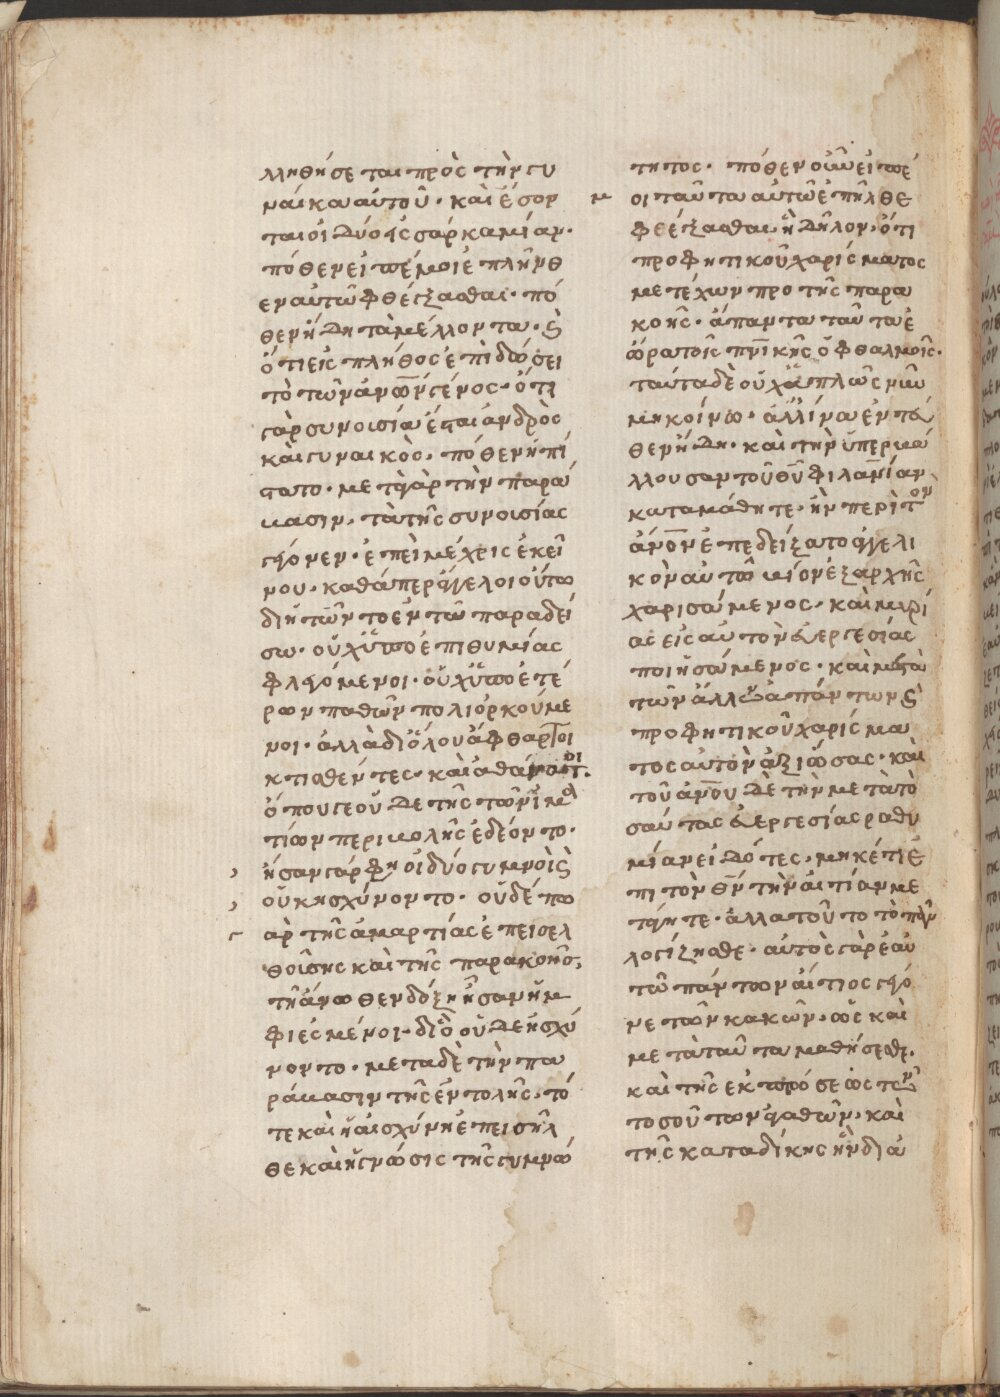 λληθήσεται πρὸς τὴν γυ
ναίκα αὐτοῦ· καὶ ἔσον
ται οἱ δύο εἰς σάρκα μίαν·
πόθεν εἰπέ μοι ἐπῆλθ
εν αὐτῶ φθέγξασθαι· πό
θεν ἤδη τὰ μέλλοντα· ϗ
ὅτι εἰς πλῆθος ἐπιδώσει
τὸ τῶν ἀνων γένος· ὅτι
γὰρ συνουσία ἔσται ἀνδρὸς
καὶ γυναικὸς· πόθεν ἠπί
στατο· μετὰ γὰρ τὴν παρά
βασιν, τὰ τῆς συνουσίας
γέγονεν· ἐπεὶ μέχρις ἐκεί
νου· καθάπερ ἄγγελοι οὕτω
διητῶντο ἐν τῶ παραδεί
σω· οὐχ ὑπὸ ἐπιθυμίας
φλεγόμενοι· οὐχ ὑπὸ ἑτέ
ρων παθῶν πολιορκούμε
νοι· ἀλλὰ διόλου ἄφθαρτοι
κτισθέντες· καὶ ἀθάνατοι·
ὅπου γε οὐδὲ τῆς τῶν ἱμα
τίων περιβολῆς ἐδέοντο·
ἦσαν γάρ φη οἱ δύο γυμνοὶ ϗ
οὐκ ἠσχύνοντο· οὐδέπω
γὰρ τῆς ἁμαρτίας ἐπεισελ
θούσης καὶ τῆς παρακοῆς,
τῆ ἄνωθεν δόξη ἦσαν ἠμ
φιεσμένοι· διὸ οὐδὲ ἠσχύ
νοντο· μετα δὲ τὴν πα
ράβασιν τῆς ἐντολῆς, τό
τε καὶ ἡ αἰσχύνη ἐπεισῆλ
θε καὶ ἡ γνῶσις τῆς γυμνό
τητος· πόθεν οὖν εἰπέ
μοι ταῦτα αὐτῶ ἐπῆλθε
φθέγξασθαι· ἢ δῆλον· ὅτι
προφητικοῦ χαρίσματος
μετέχων προ τῆς παρα
κοῆς· ἅπαντα ταῦτα ἑ
ώρα τοῖς πνικῆς ὀφθαλμοῖς·
ταῦτα δὲ οὐχ ἁπλῶς ὑμῖν
μηκύνω· ἀλλ' ἵνα ἐντεῦ
θεν ἤδη· καὶ τὴν ὑπερβά
λλουσαν τοῦ θυ φιλανίαν
καταμάθητε· ἣν περὶ τὸν
ἄνον ἐπεδείξατο ἀγγελι
κὸν αὐτῶ βίον ἐξαρχῆς
χαρισάμενος· καὶ μυρί
ας εἰς αὐτὸν εὐεργεσίας
ποιησάμενος· καὶ μετὰ
τῶν ἄλλων ἁπάντων ϗ
προφητικοῦ χαρίσμα
τος αὐτὸν ἀξιώσας· καὶ
τοῦ ἀνου δὲ τὴν μετὰ το
σαύτας εὐεργεσίας ραθυ
μίαν εἰδότες· μηκέτι ἐ
πι τὸν θν τὴν αἰτίαν με
τάγητε· ἀλλα τούτο τὸ πᾶν
λογίζησθε· αὐτὸς γὰρ ἑαυ
τῶ πάντων αἴτιος γέγο
νε τῶν κακῶν· ὡς καὶ
μετὰ ταῦτα μαθήσεσθε·
καὶ τῆς ἐκπτώσεως τῶν
τοσούτων ἀγαθῶν· καὶ
τῆς καταδίκης ἣν διὰ